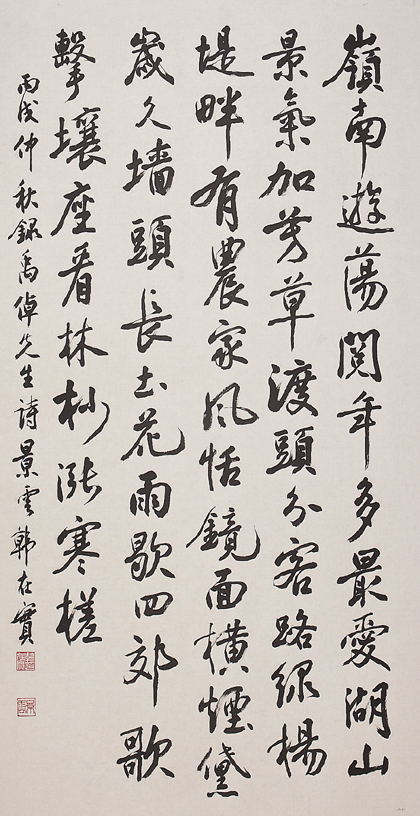 嶺南遊蕩閱年多最愛湖山
景氣加芳草渡頭分客路綠楊
堤畔有農家風恬鏡面橫煙黛
歲久墻頭長土花雨歇四郊歌
擊壤座看林杪漲寒槎
丙戌仲秋錄禹倬先生詩景雲韓在實